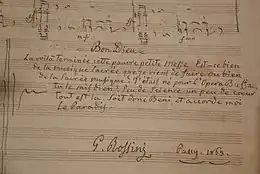 Bon Dieu
La voilà terminée cette pauvre petite Messe. Est-ce bien
de la musique Sacrée que je viens de faire ou bien
de la Sacrée musique? J'étais né pour l'Opera Buffa,
tu le sais bien! Peu de science un peu de cœur
tout est là. Sois donc Beni et accorde moi
le Paradis.
G. Rossini
Passy. 1863.